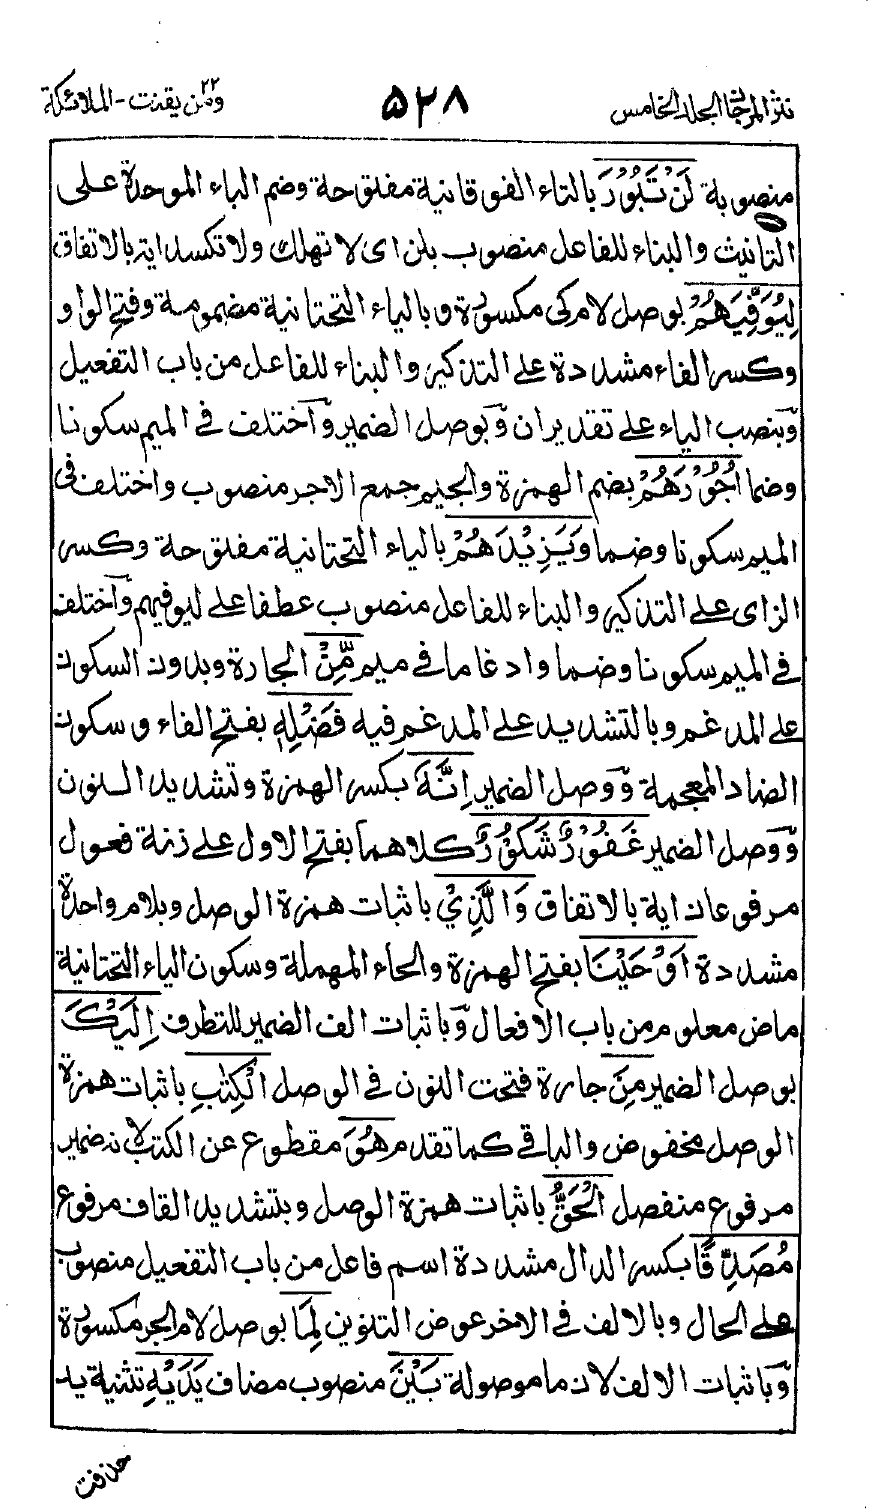 نثر المرجان المجلد الخامس ۵۲۸ ومن يقنت ۲۲ - الملائكة
منصوبة لَنْ تَبُوْرَ بالتاء الفوقانية مفتوحة وضم الباء الموحدة على
التانيث والبناء للفاعل منصوب بلن اى لا تهلك ولا تكسد اية بالاتفاق
لِيُوَفِّيَهُمْ بوصل لام كى مكسورة وبالياء التحتانية مضمومة وفتح الواو
وكسر الفاء مشددة على التذكير والبناء للفاعل من باب التفعيل
وبنصب الياء على تقدير ان وبوصل الضمير واختلف في الميم سكونا
وضما اُجُوْرَهُمْ بضم الهمزة والجيم جمع الاجر منصوب واختلف في
الميم سكونا وضما وَيَزِيْدَهُمْ بالياء التحتانية مفتوحة وكسر
الزاى على التذكير والبناء للفاعل منصوب عطفا على ليوفيهم واختلف
في الميم سكونا وضما وادغاما في ميم مِّنْ الجارة وبدون السكون
على المدغم وبالتشديد على المدغم فيه فَضْلِهٖ بفتح الفاء وسكون
الضاد المعجمة ووصل الضمير اِنَّهٗ بكسر الهمزة وتشديد النون
ووصل الضمير غَفُوْرٌ شَكُوْرٌ كلاهما بفتح الاول على زنة فعول
مرفوعان اية بالاتفاق وَالَّذِيْ باثبات همزة الوصل وبلام واحدة
مشددة اَوْحَيْنَا بفتح الهمزة والحاء المهملة وسكون الياء التحتانية
ماض معلوم من باب الافعال وباثبات الف الضمير للتطرف اِلَيْكَ
بوصل الضمير مِنَ جارة فتحت النون في الوصل الْكِتٰبِ باثبات همزة
الوصل مخفوض والباقي كما تقدم هُوَ مقطوع عن الكتب لانه ضمير
مرفوع منفصل الْحَقُّ باثبات همزة الوصل وبتشديد القاف مرفوع
مُصَدِّقًا بكسر الدال مشددة اسم فاعل من باب التفعيل منصوب
على الحال وبالالف في الاخر عوض التنوين لِمَا بوصل لام الجر مكسورة
وباثبات الالف لان ما موصولة بَيْنَ منصوب مضاف يَدَيْهِ تثنية يد
حذفت